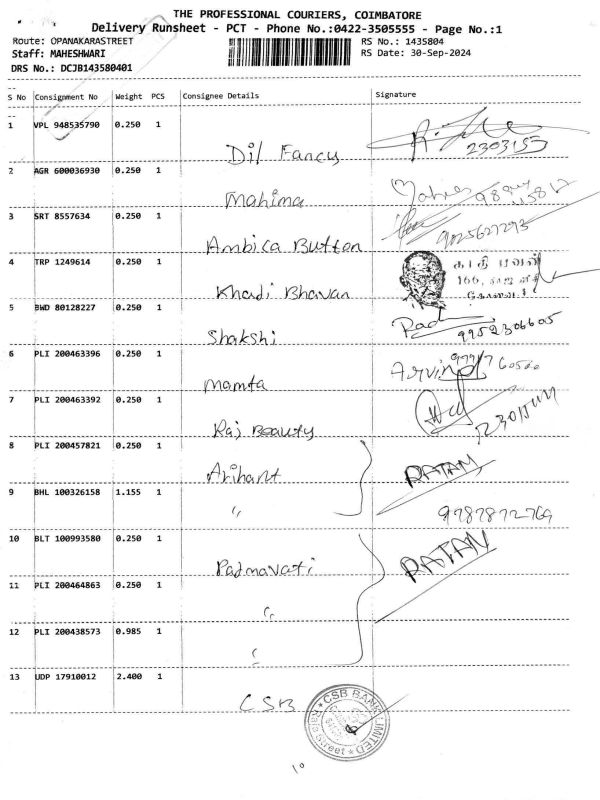 THE PROFESSIONAL COURIERS, COIMBATORE
Delivery Runsheet - PCT - Phone No.:0422-3505555 - Page No.:1
Route: OPANAKARASTREET RS No.: 1435804
Staff: MAHESHWARI RS Date: 30-Sep-2024
DRS No.: DCJB143580401
S No Consignment No Weight PCS Consignee Details Signature
1 VPL 948535790 0.250 1
Dil Fancy 2303155
2 AGR 600036930 0.250 1
Mahima
3 SRT 8557634 0.250 1
Ambica Button 9025627293
4 TRP 1249614 0.250 1 காதி பவன்
Khadi Bhavan
5 BWD 80128227 0.250 1
Shakshi 9952306605
6 PLI 200463396 0.250 1
Mamta Arvind
7 PLI 200463392 0.250 1
Raj Beauty
8 PLI 200457821 0.250 1
Arihant RATAN
9 BHL 100326158 1.155 1
" 9787872769
10 BLT 100993580 0.250 1
Padmavati RATAN
11 PLI 200464863 0.250 1
"
12 PLI 200438573 0.985 1
"
13 UDP 17910012 2.400 1
CSB CSB BANK LIMITED
Raja Street
10